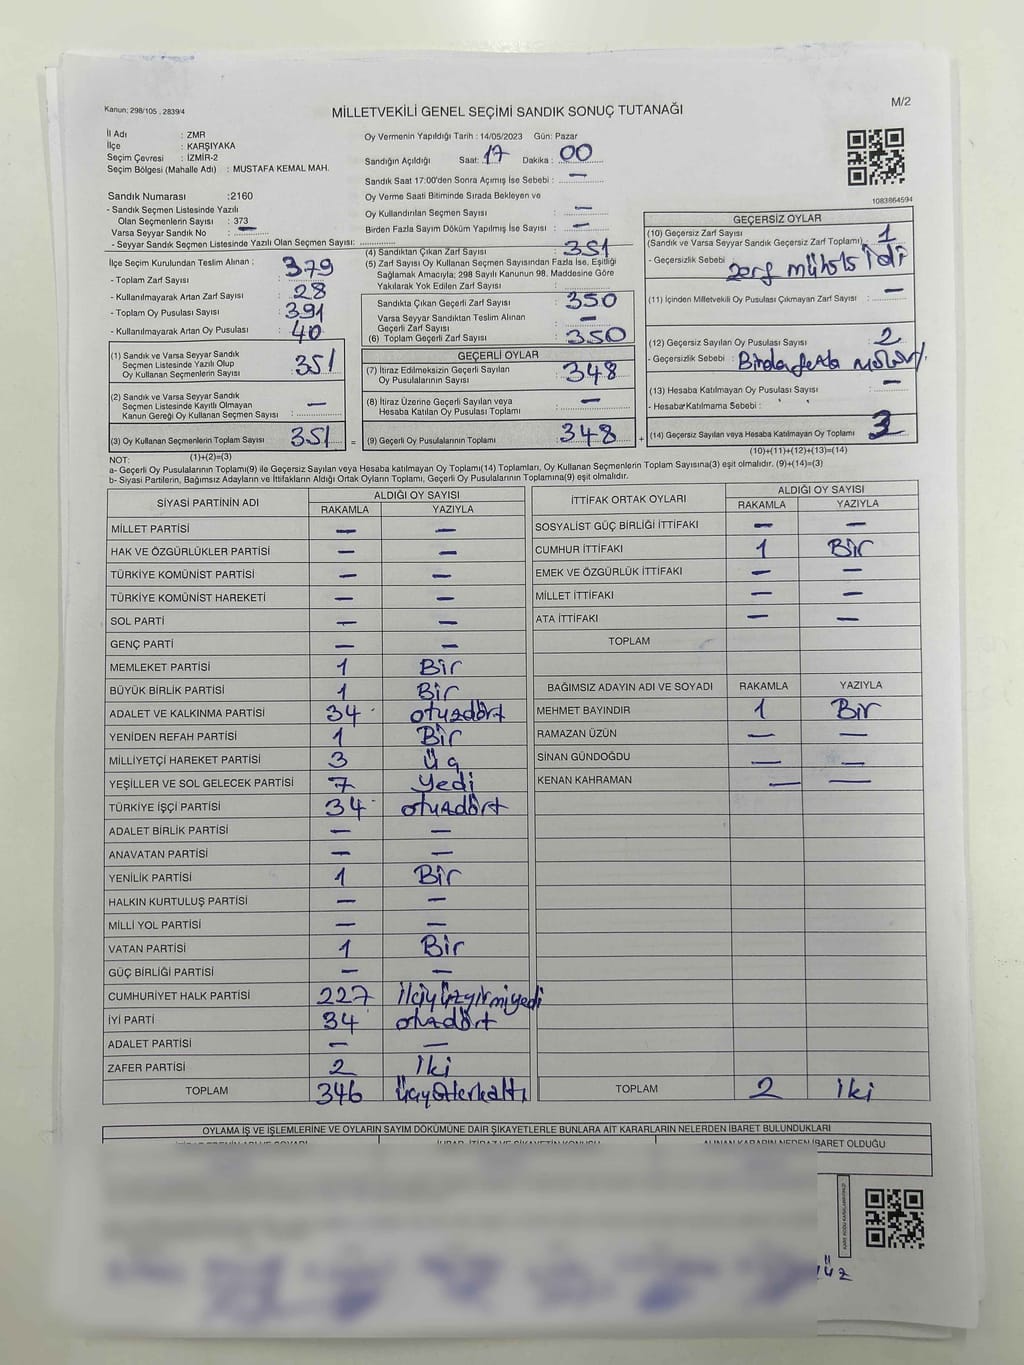 Kanun: 298/105 , 2839/4
MİLLETVEKİLİ GENEL SEÇİMİ SANDIK SONUÇ TUTANAĞI
M/2
İl Adı : ZMR
İlçe : KARŞIYAKA
Seçim Çevresi : İZMİR-2
Seçim Bölgesi (Mahalle Adı) : MUSTAFA KEMAL MAH.
Sandık Numarası :2160
- Sandık Seçmen Listesinde Yazılı
Olan Seçmenlerin Sayısı : 373
Varsa Seyyar Sandık No : —
- Seyyar Sandık Seçmen Listesinde Yazılı Olan Seçmen Sayısı:
İlçe Seçim Kurulundan Teslim Alınan :
- Toplam Zarf Sayısı : 379
- Kullanılmayarak Artan Zarf Sayısı : 28
- Toplam Oy Pusulası Sayısı : 391
- Kullanılmayarak Artan Oy Pusulası : 40
(1) Sandık ve Varsa Seyyar Sandık
Seçmen Listesinde Yazılı Olup
Oy Kullanan Seçmenlerin Sayısı : 351
(2) Sandık ve Varsa Seyyar Sandık
Seçmen Listesinde Kayıtlı Olmayan
Kanun Gereği Oy Kullanan Seçmen Sayısı : —
(3) Oy Kullanan Seçmenlerin Toplam Sayısı : 351 =
Oy Vermenin Yapıldığı Tarih : 14/05/2023 Gün: Pazar
Sandığın Açıldığı Saat: 17 Dakika : 00
Sandık Saat 17:00'den Sonra Açımış İse Sebebi : —
Oy Verme Saati Bitiminde Sırada Bekleyen ve
Oy Kullandırılan Seçmen Sayısı : —
Birden Fazla Sayım Döküm Yapılmış İse Sayısı : —
(4) Sandıktan Çıkan Zarf Sayısı : 351
(5) Zarf Sayısı Oy Kullanan Seçmen Sayısından Fazla İse, Eşitliği
Sağlamak Amacıyla; 298 Sayılı Kanunun 98. Maddesine Göre
Yakılarak Yok Edilen Zarf Sayısı :
Sandıkta Çıkan Geçerli Zarf Sayısı : 350
Varsa Seyyar Sandıktan Teslim Alınan
Geçerli Zarf Sayısı : —
(6) Toplam Geçerli Zarf Sayısı : 350
GEÇERLİ OYLAR
(7) İtiraz Edilmeksizin Geçerli Sayılan
Oy Pusulalarının Sayısı : 348
(8) İtiraz Üzerine Geçerli Sayılan veya
Hesaba Katılan Oy Pusulası Toplamı : —
(9) Geçerli Oy Pusulalarının Toplamı : 348 +
1083864594
GEÇERSİZ OYLAR
(10) Geçersiz Zarf Sayısı
(Sandık ve Varsa Seyyar Sandık Geçersiz Zarf Toplamı) : 1
- Geçersizlik Sebebi : idi
(11) İçinden Milletvekili Oy Pusulası Çıkmayan Zarf Sayısı : —
(12) Geçersiz Sayılan Oy Pusulası Sayısı : 2
- Geçersizlik Sebebi :
(13) Hesaba Katılmayan Oy Pusulası Sayısı : —
- Hesaba Katılmama Sebebi :
(14) Geçersiz Sayılan veya Hesaba Katılmayan Oy Toplamı : 3
NOT: (1)+(2)=(3) (10)+(11)+(12)+(13)=(14)
a- Geçerli Oy Pusulalarının Toplamı(9) ile Geçersiz Sayılan veya Hesaba katılmayan Oy Toplamı(14) Toplamları, Oy Kullanan Seçmenlerin Toplam Sayısına(3) eşit olmalıdır. (9)+(14)=(3)
b- Siyasi Partilerin, Bağımsız Adayların ve İttifakların Aldığı Ortak Oyların Toplamı, Geçerli Oy Pusulalarının Toplamına(9) eşit olmalıdır.
SİYASİ PARTİNİN ADI ALDIĞI OY SAYISI
RAKAMLA YAZIYLA
MİLLET PARTİSİ — —
HAK VE ÖZGÜRLÜKLER PARTİSİ — —
TÜRKİYE KOMÜNİST PARTİSİ — —
TÜRKİYE KOMÜNİST HAREKETİ — —
SOL PARTİ — —
GENÇ PARTİ — —
MEMLEKET PARTİSİ 1 Bir
BÜYÜK BİRLİK PARTİSİ 1 Bir
ADALET VE KALKINMA PARTİSİ 34 otuzdört
YENİDEN REFAH PARTİSİ 1 Bir
MİLLİYETÇİ HAREKET PARTİSİ 3 Üç
YEŞİLLER VE SOL GELECEK PARTİSİ 7 Yedi
TÜRKİYE İŞÇİ PARTİSİ 34 otuzdört
ADALET BİRLİK PARTİSİ — —
ANAVATAN PARTİSİ — —
YENİLİK PARTİSİ 1 Bir
HALKIN KURTULUŞ PARTİSİ — —
MİLLİ YOL PARTİSİ — —
VATAN PARTİSİ 1 Bir
GÜÇ BİRLİĞİ PARTİSİ — —
CUMHURİYET HALK PARTİSİ 227 ikiyüzyirmiyedi
İYİ PARTİ 34 otuzdört
ADALET PARTİSİ — —
ZAFER PARTİSİ 2 İki
TOPLAM 346
İTTİFAK ORTAK OYLARI ALDIĞI OY SAYISI
RAKAMLA YAZIYLA
SOSYALİST GÜÇ BİRLİĞİ İTTİFAKI — —
CUMHUR İTTİFAKI 1 Bir
EMEK VE ÖZGÜRLÜK İTTİFAKI — —
MİLLET İTTİFAKI — —
ATA İTTİFAKI — —
TOPLAM
BAĞIMSIZ ADAYIN ADI VE SOYADI RAKAMLA YAZIYLA
MEHMET BAYINDIR 1 Bir
RAMAZAN ÜZÜN — —
SİNAN GÜNDOĞDU — —
KENAN KAHRAMAN — —
TOPLAM 2 iki
OYLAMA İŞ VE İŞLEMLERİNE VE OYLARIN SAYIM DÖKÜMÜNE DAİR ŞİKAYETLERLE BUNLARA AİT KARARLARIN NELERDEN İBARET BULUNDUKLARI
ALINAN KARARIN NEDEN İBARET OLDUĞU